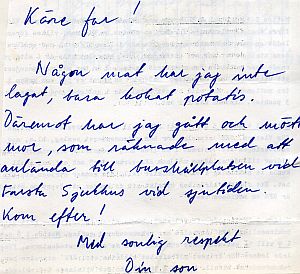 Käre far!
Någon mat har jag inte
lagat, bara kokat potatis.
Däremot har jag gått och mött
mor, som räknade med att
anlända till busshållplatsen vid
Farsta Sjukhus vid sjutiden.
Kom efter!
Med sonlig respekt
Din son